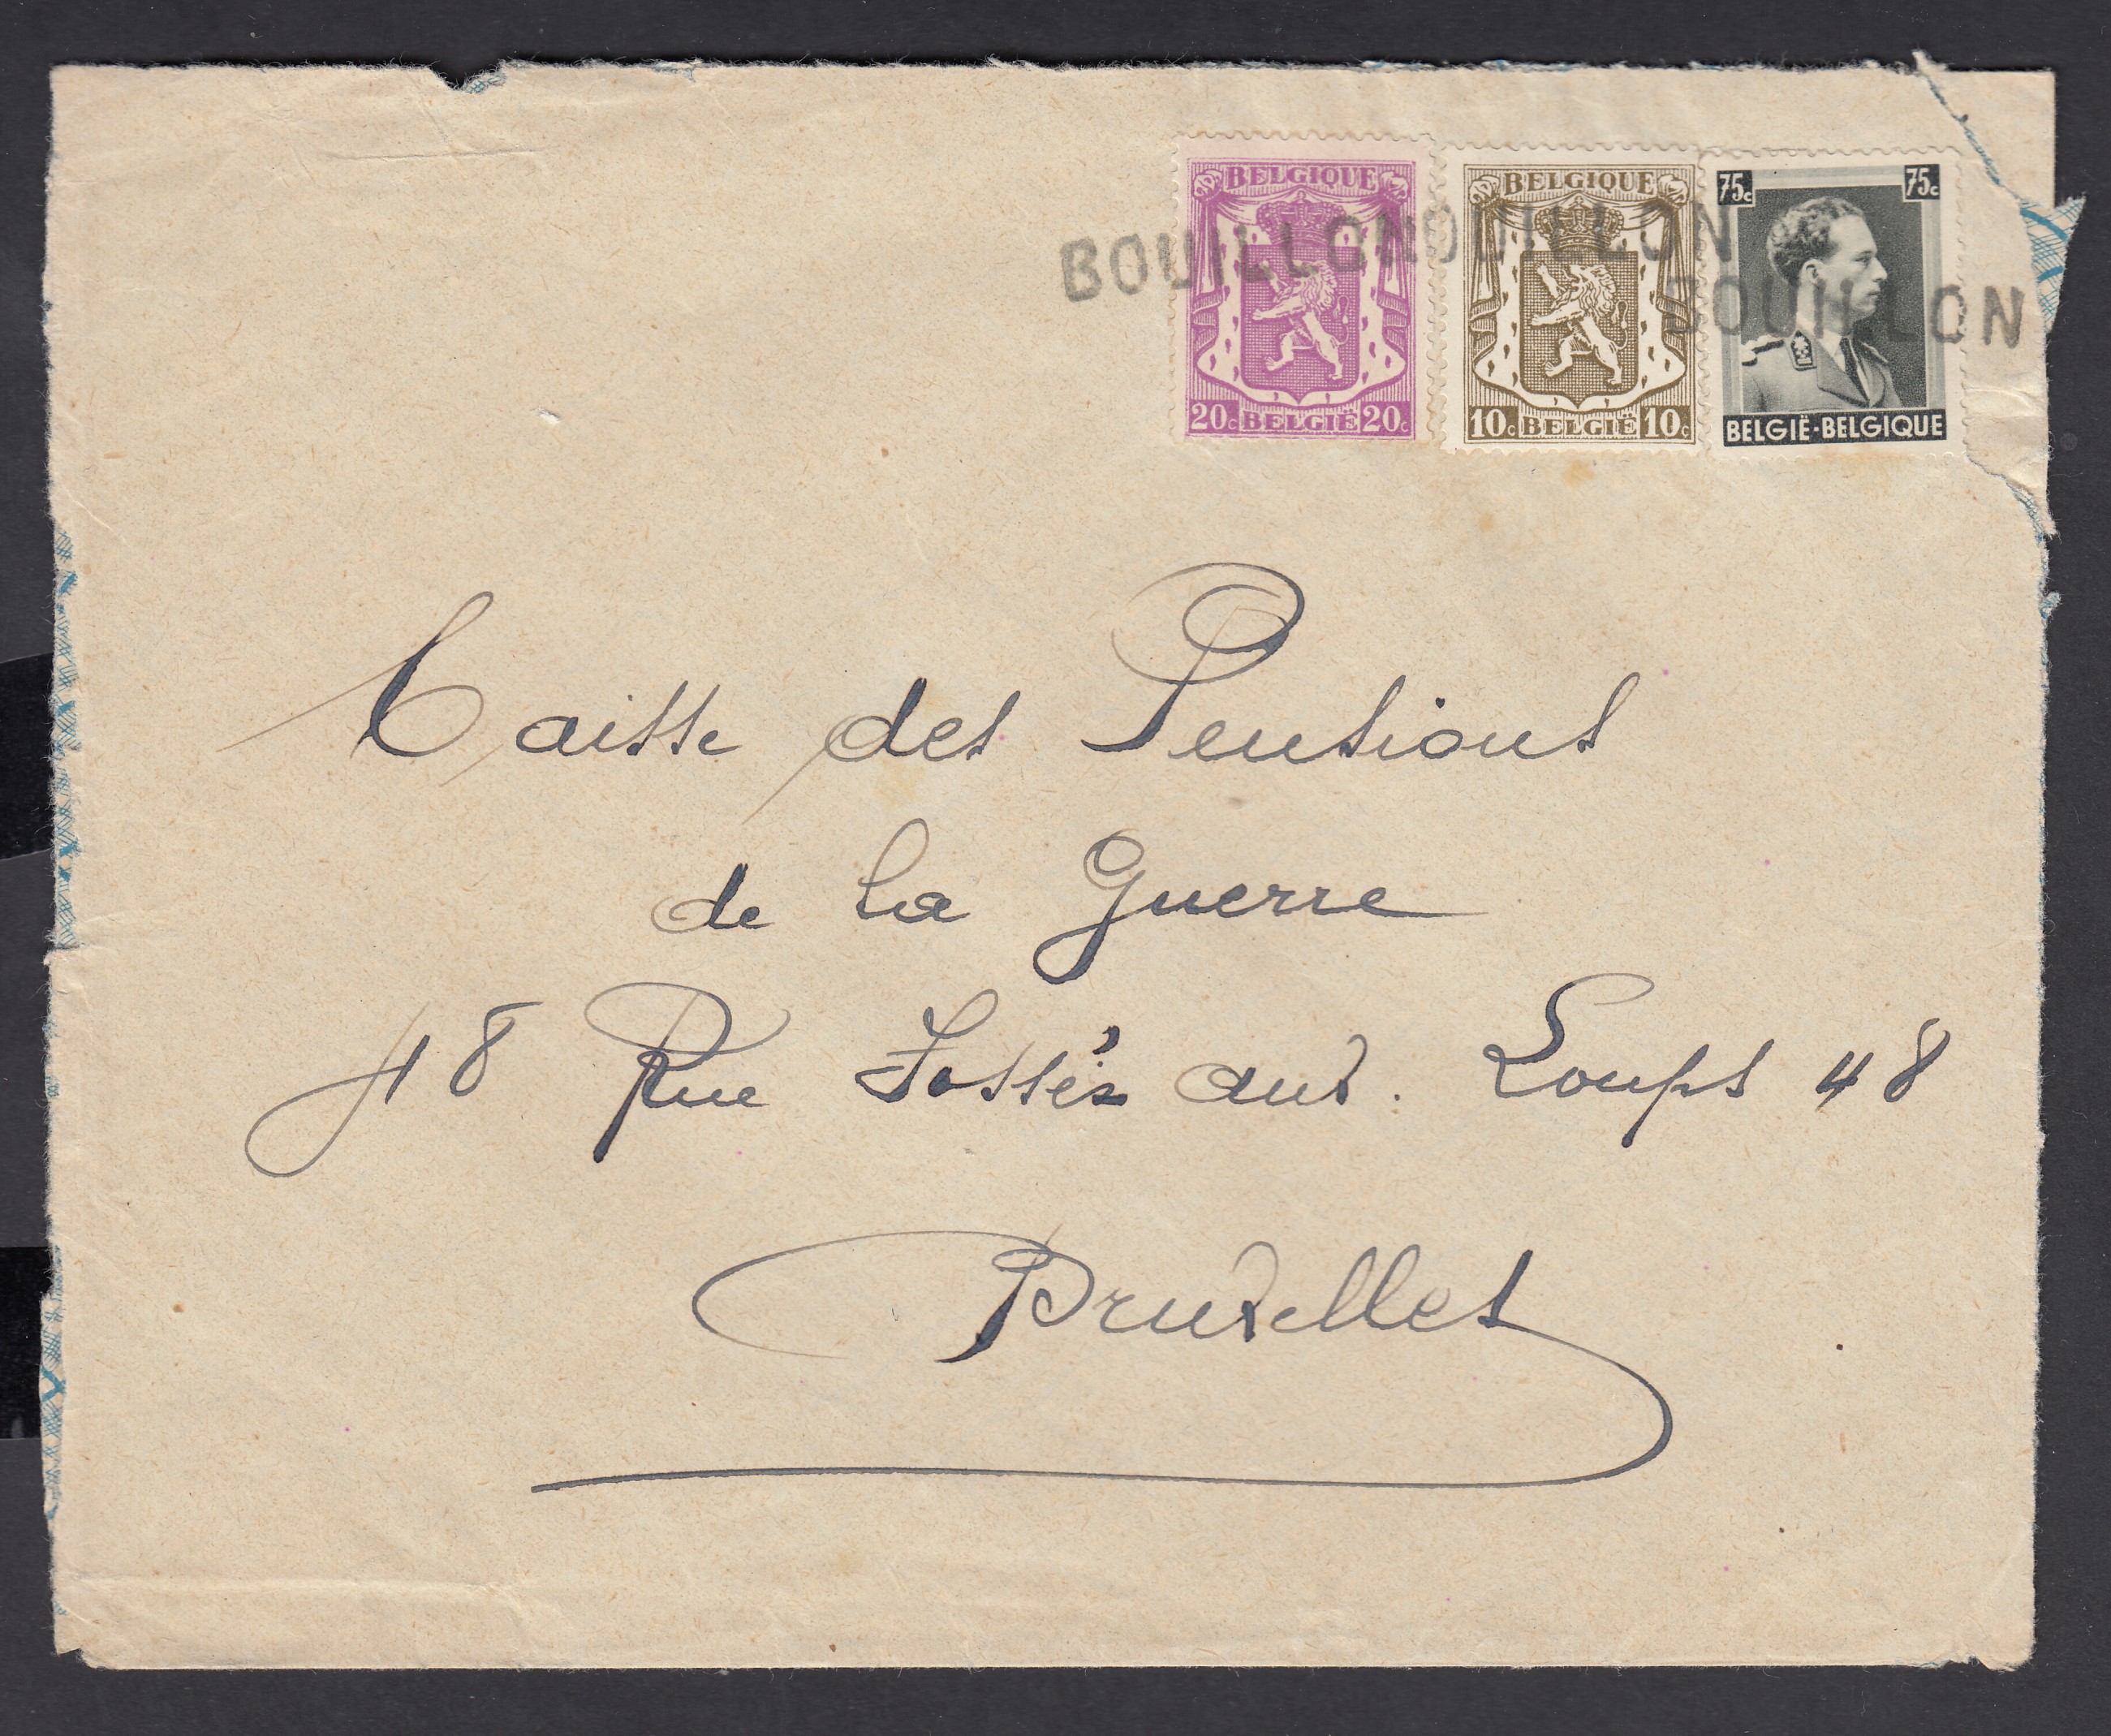 BELGIQUE
20c BELGIË 20c
BELGIQUE
10c BELGIË 10c
75c 75c
BELGIË-BELGIQUE
BOUILLON
OUILLON
BOUILLON
Caisse des Pensions
de la Guerre
48 Rue Fossés aux. Loups 48
Bruxelles